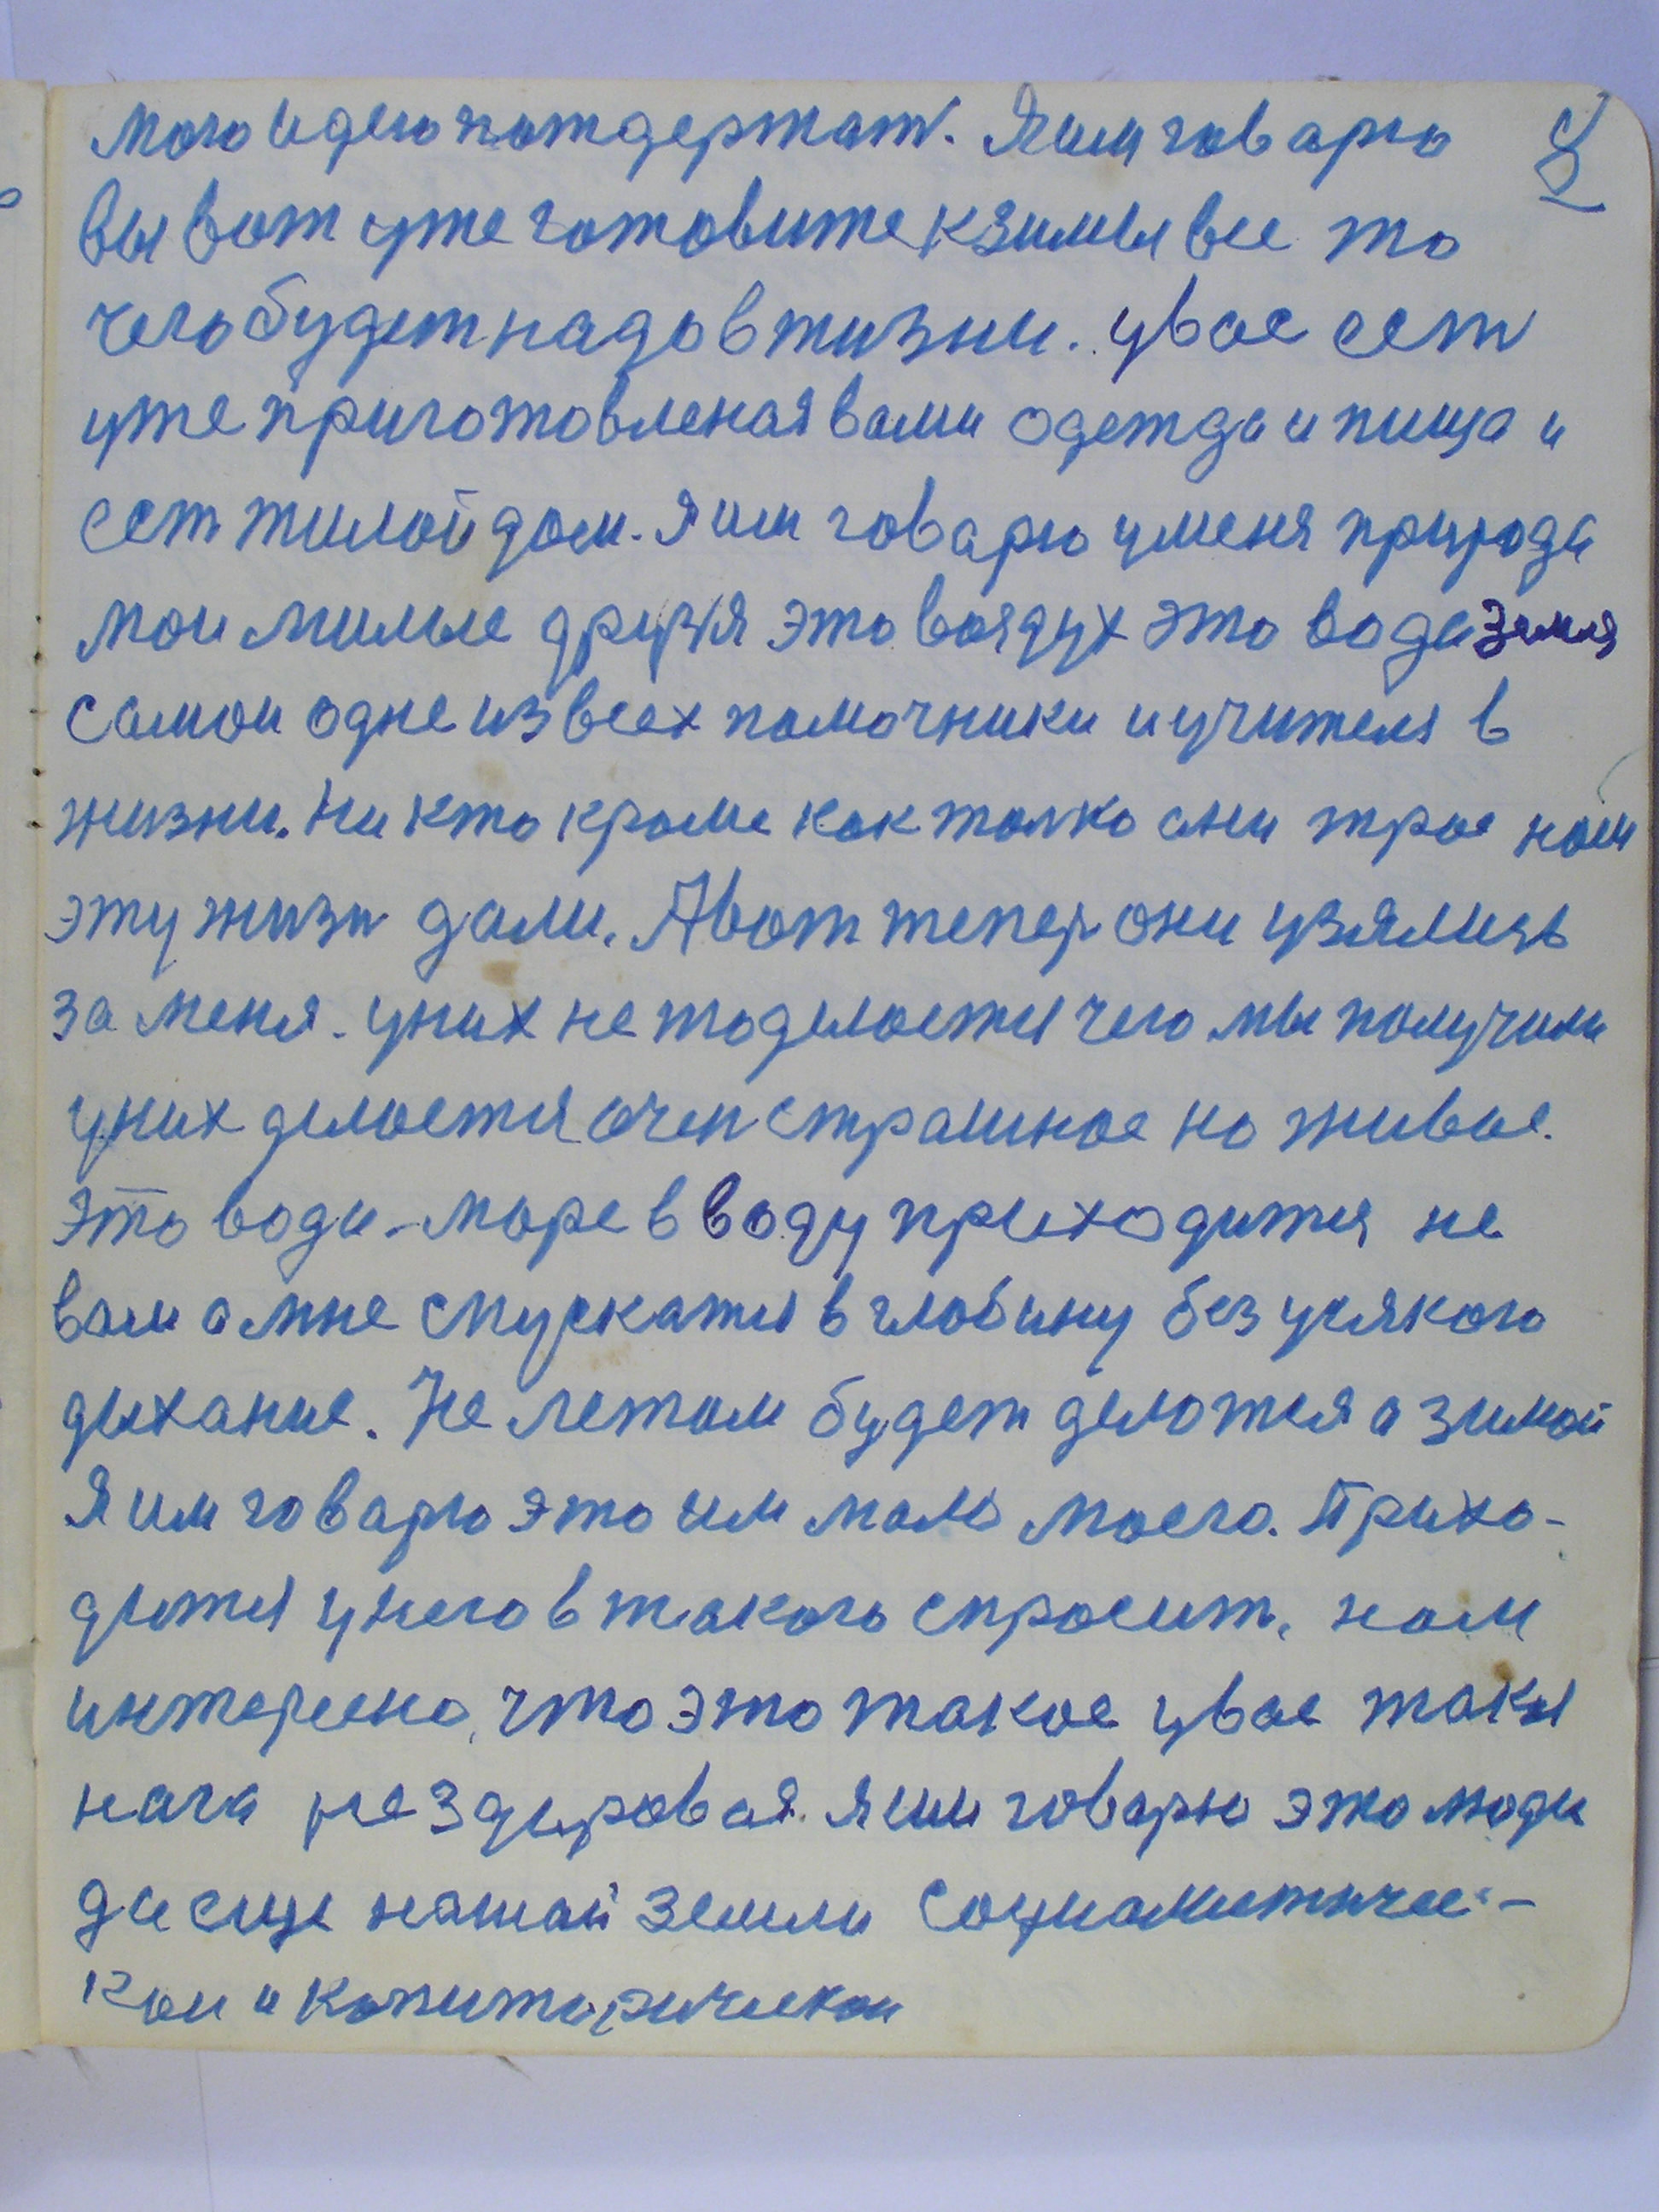 мою идею потдержат. Я им говарю 8
вы вот уже готовите к зимы все то
чего будет надо в жизни. у вас ест
уже приготовленая вами одежда и пища и
ест жилой дом. Я им говарю у меня природа
мои милые друзя это воздух это вода земля
самои одне из всех памочники и учителя в
жизни. Ни кто кроме как толко они трое нам
эту жизн дали. А вот тепер они узялись
за меня. у них не то делается чего мы получили
у них делается очен страшное но живое.
Это вода – море в воду приходится не
вам а мне спускатся в глобину без усякого
дыхание. Не летом будет делатся а зимой
Я им говарю это им мало моего. Прихо-
дится у него в такого спросит, нам
интересно, что это такое у вас такая
нага не здоровая. Я им говарю это люди
да еще нашай земли социалистичес-
кои и капиталическои